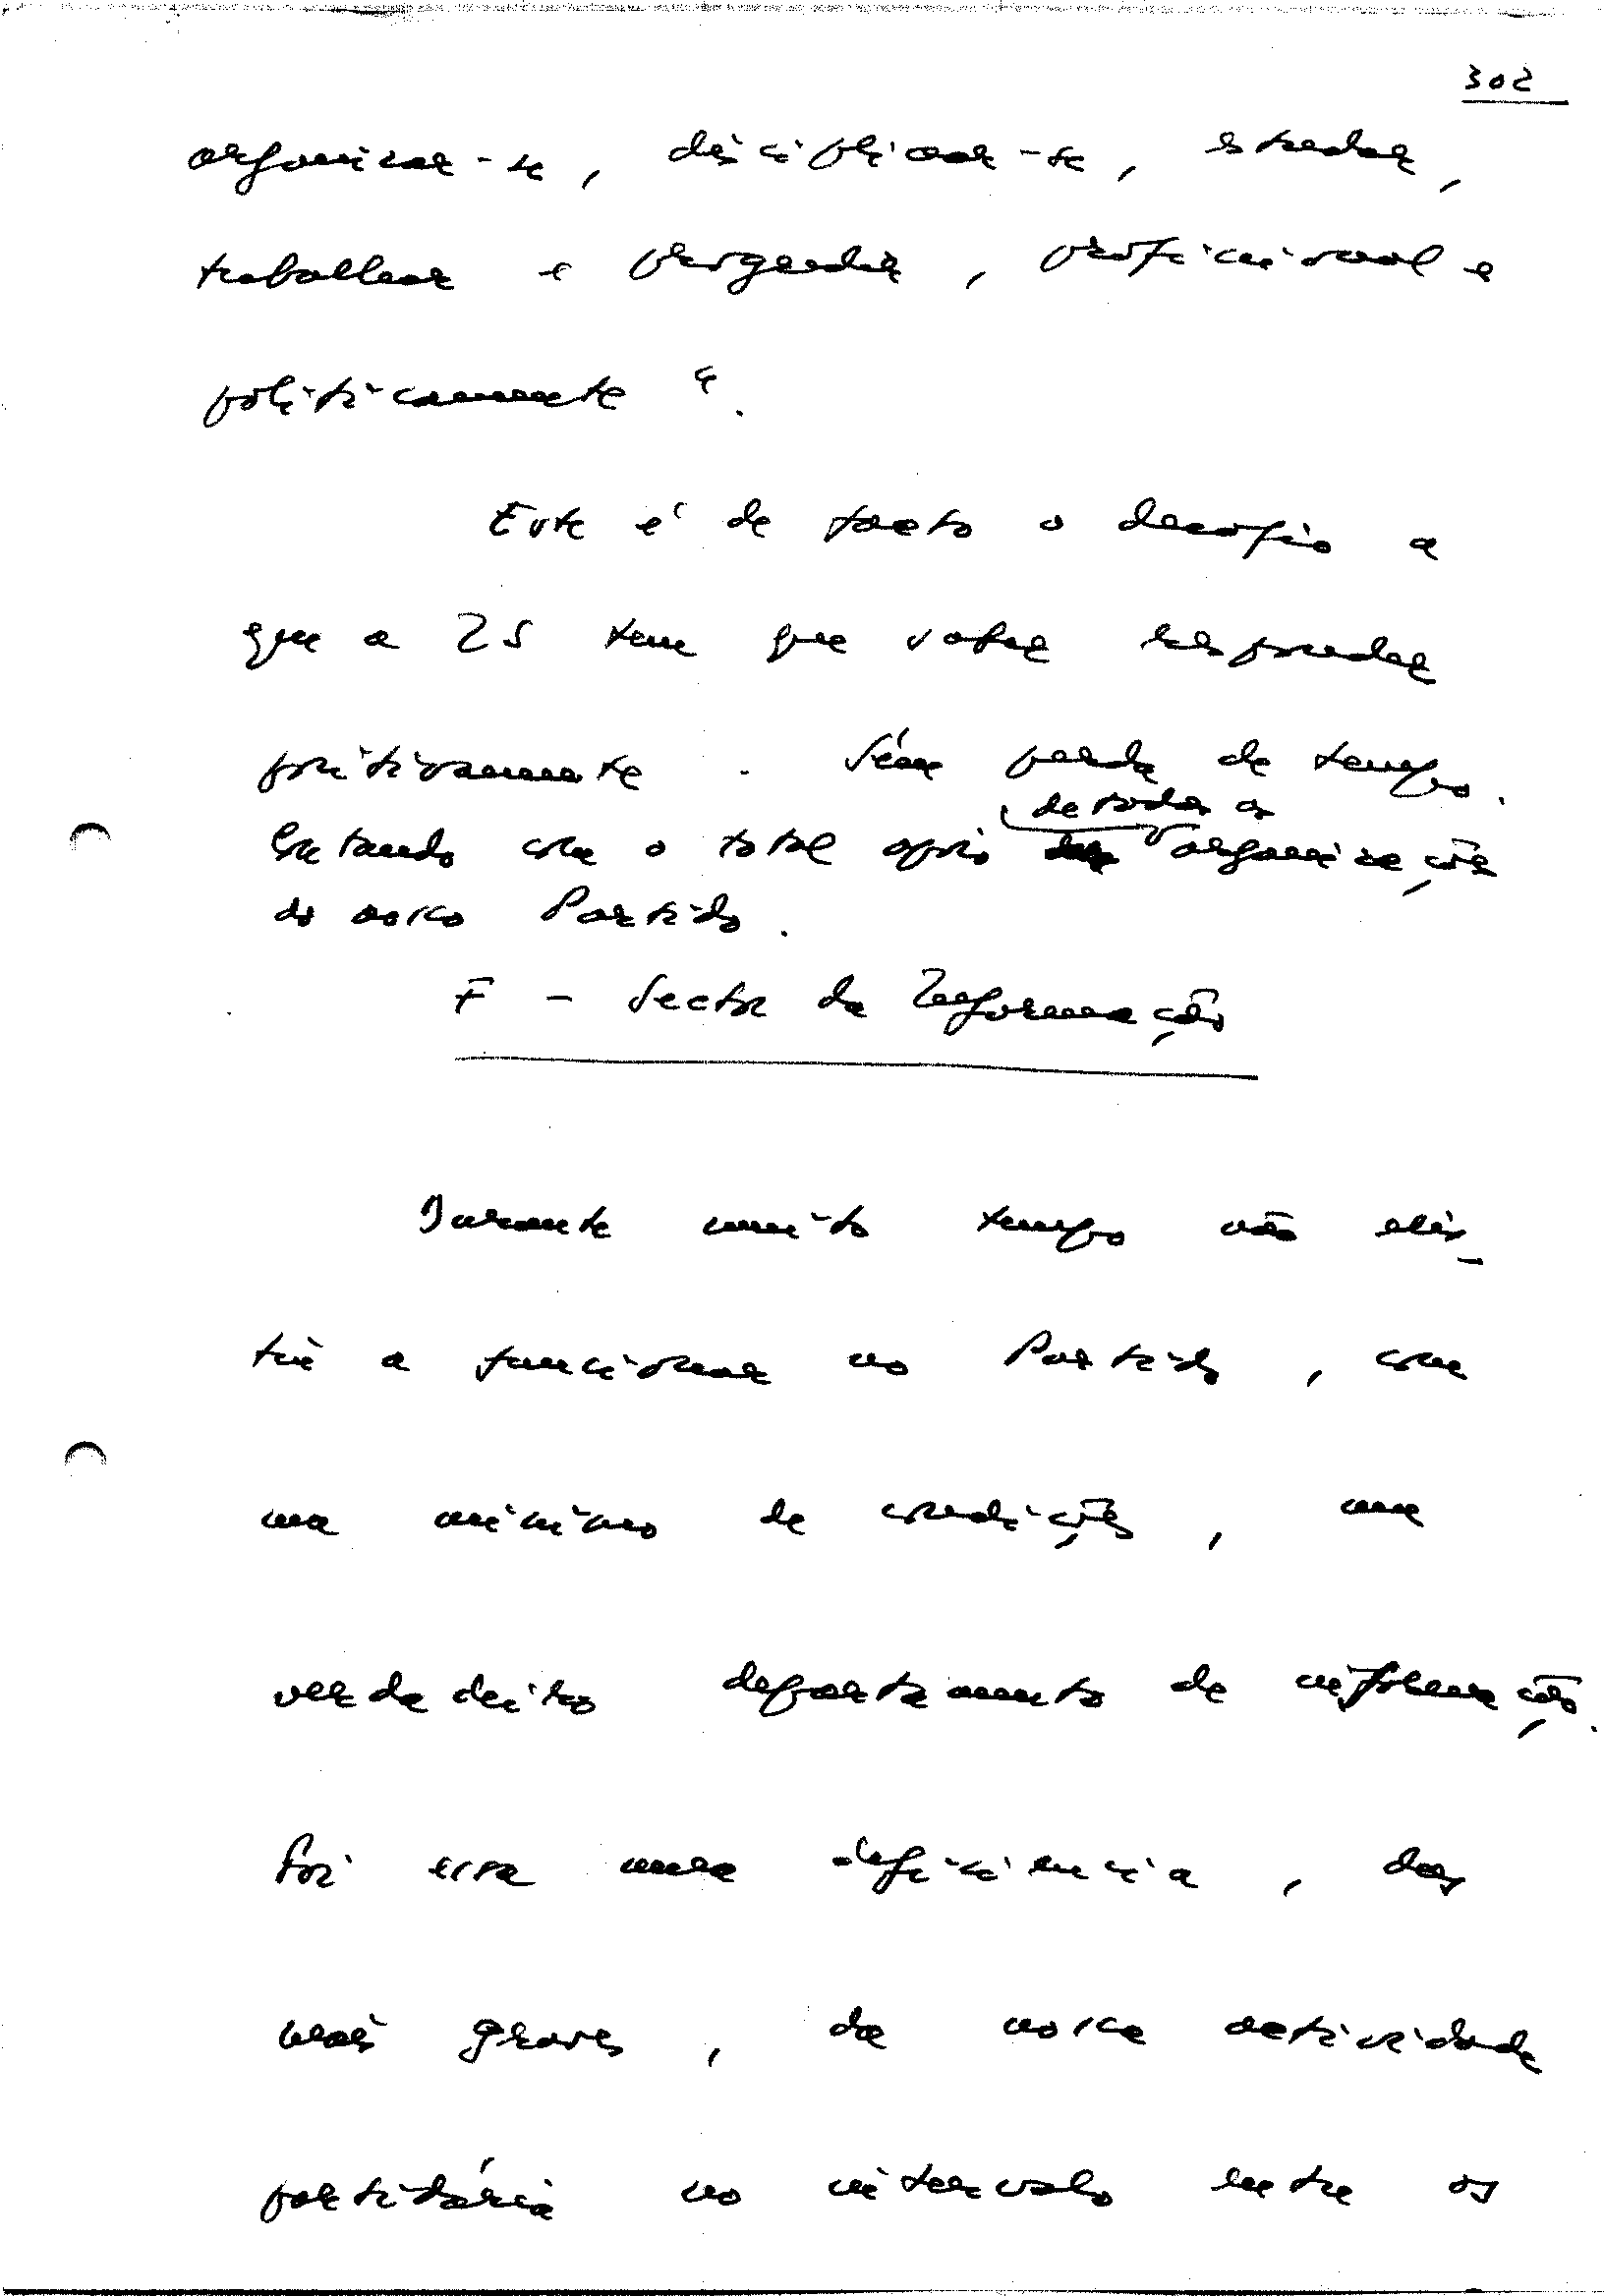 302
organizar-se, disciplinar-se, estudar,
trabalhar e progredir, profissional e
politicamente".
Este é de facto o desafio a
que a ZS tem que saber responder
politicamente. Sem perda de tempo.
de todas as
Contando com o total apoio organizações
do nosso Partido.
F - Sector da Informação
Durante muito tempo não exis-
tiu a funcionar no Partido, com
um mínimo de condições, um
verdadeiro departamento de informação.
Foi essa uma deficiência, das
mais graves, da nossa actividade
partidária no intervalo entre os